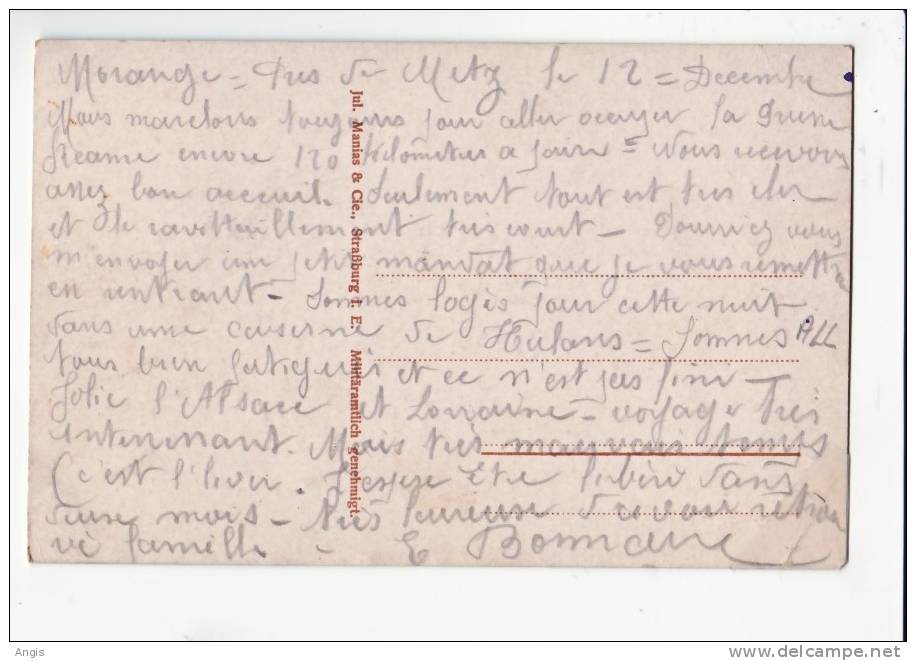 Morange = Près de Metz le 12 = Decembre
Nous marchons toujours pour aller occuper la
encore 120 Kilometres a faire = Nous recevons
assez bon acceuil. Seulement tout est tres cher
et le ravitaillement tres court - Pourriez vous
m envoyer un petit mandat que je vous remettrai
en rentrant - Sommes logés pour cette nuit
dans une caserne de Hulans = Sommes
tous bien fatigués et ce n'est pas fini -
Jolie l'Alsace et Lorraine - voyage très
interressant. Mais très mauvais temps
C'est l'hiver. J'espere être liberé dans
deux mois - très heureux d'avoir retrou
vé famille - E Bonnaire
ALL
Jul. Manias & Cie., Straßburg i. E. Militäramtlich genehmigt.
Angis
www.delcampe.net